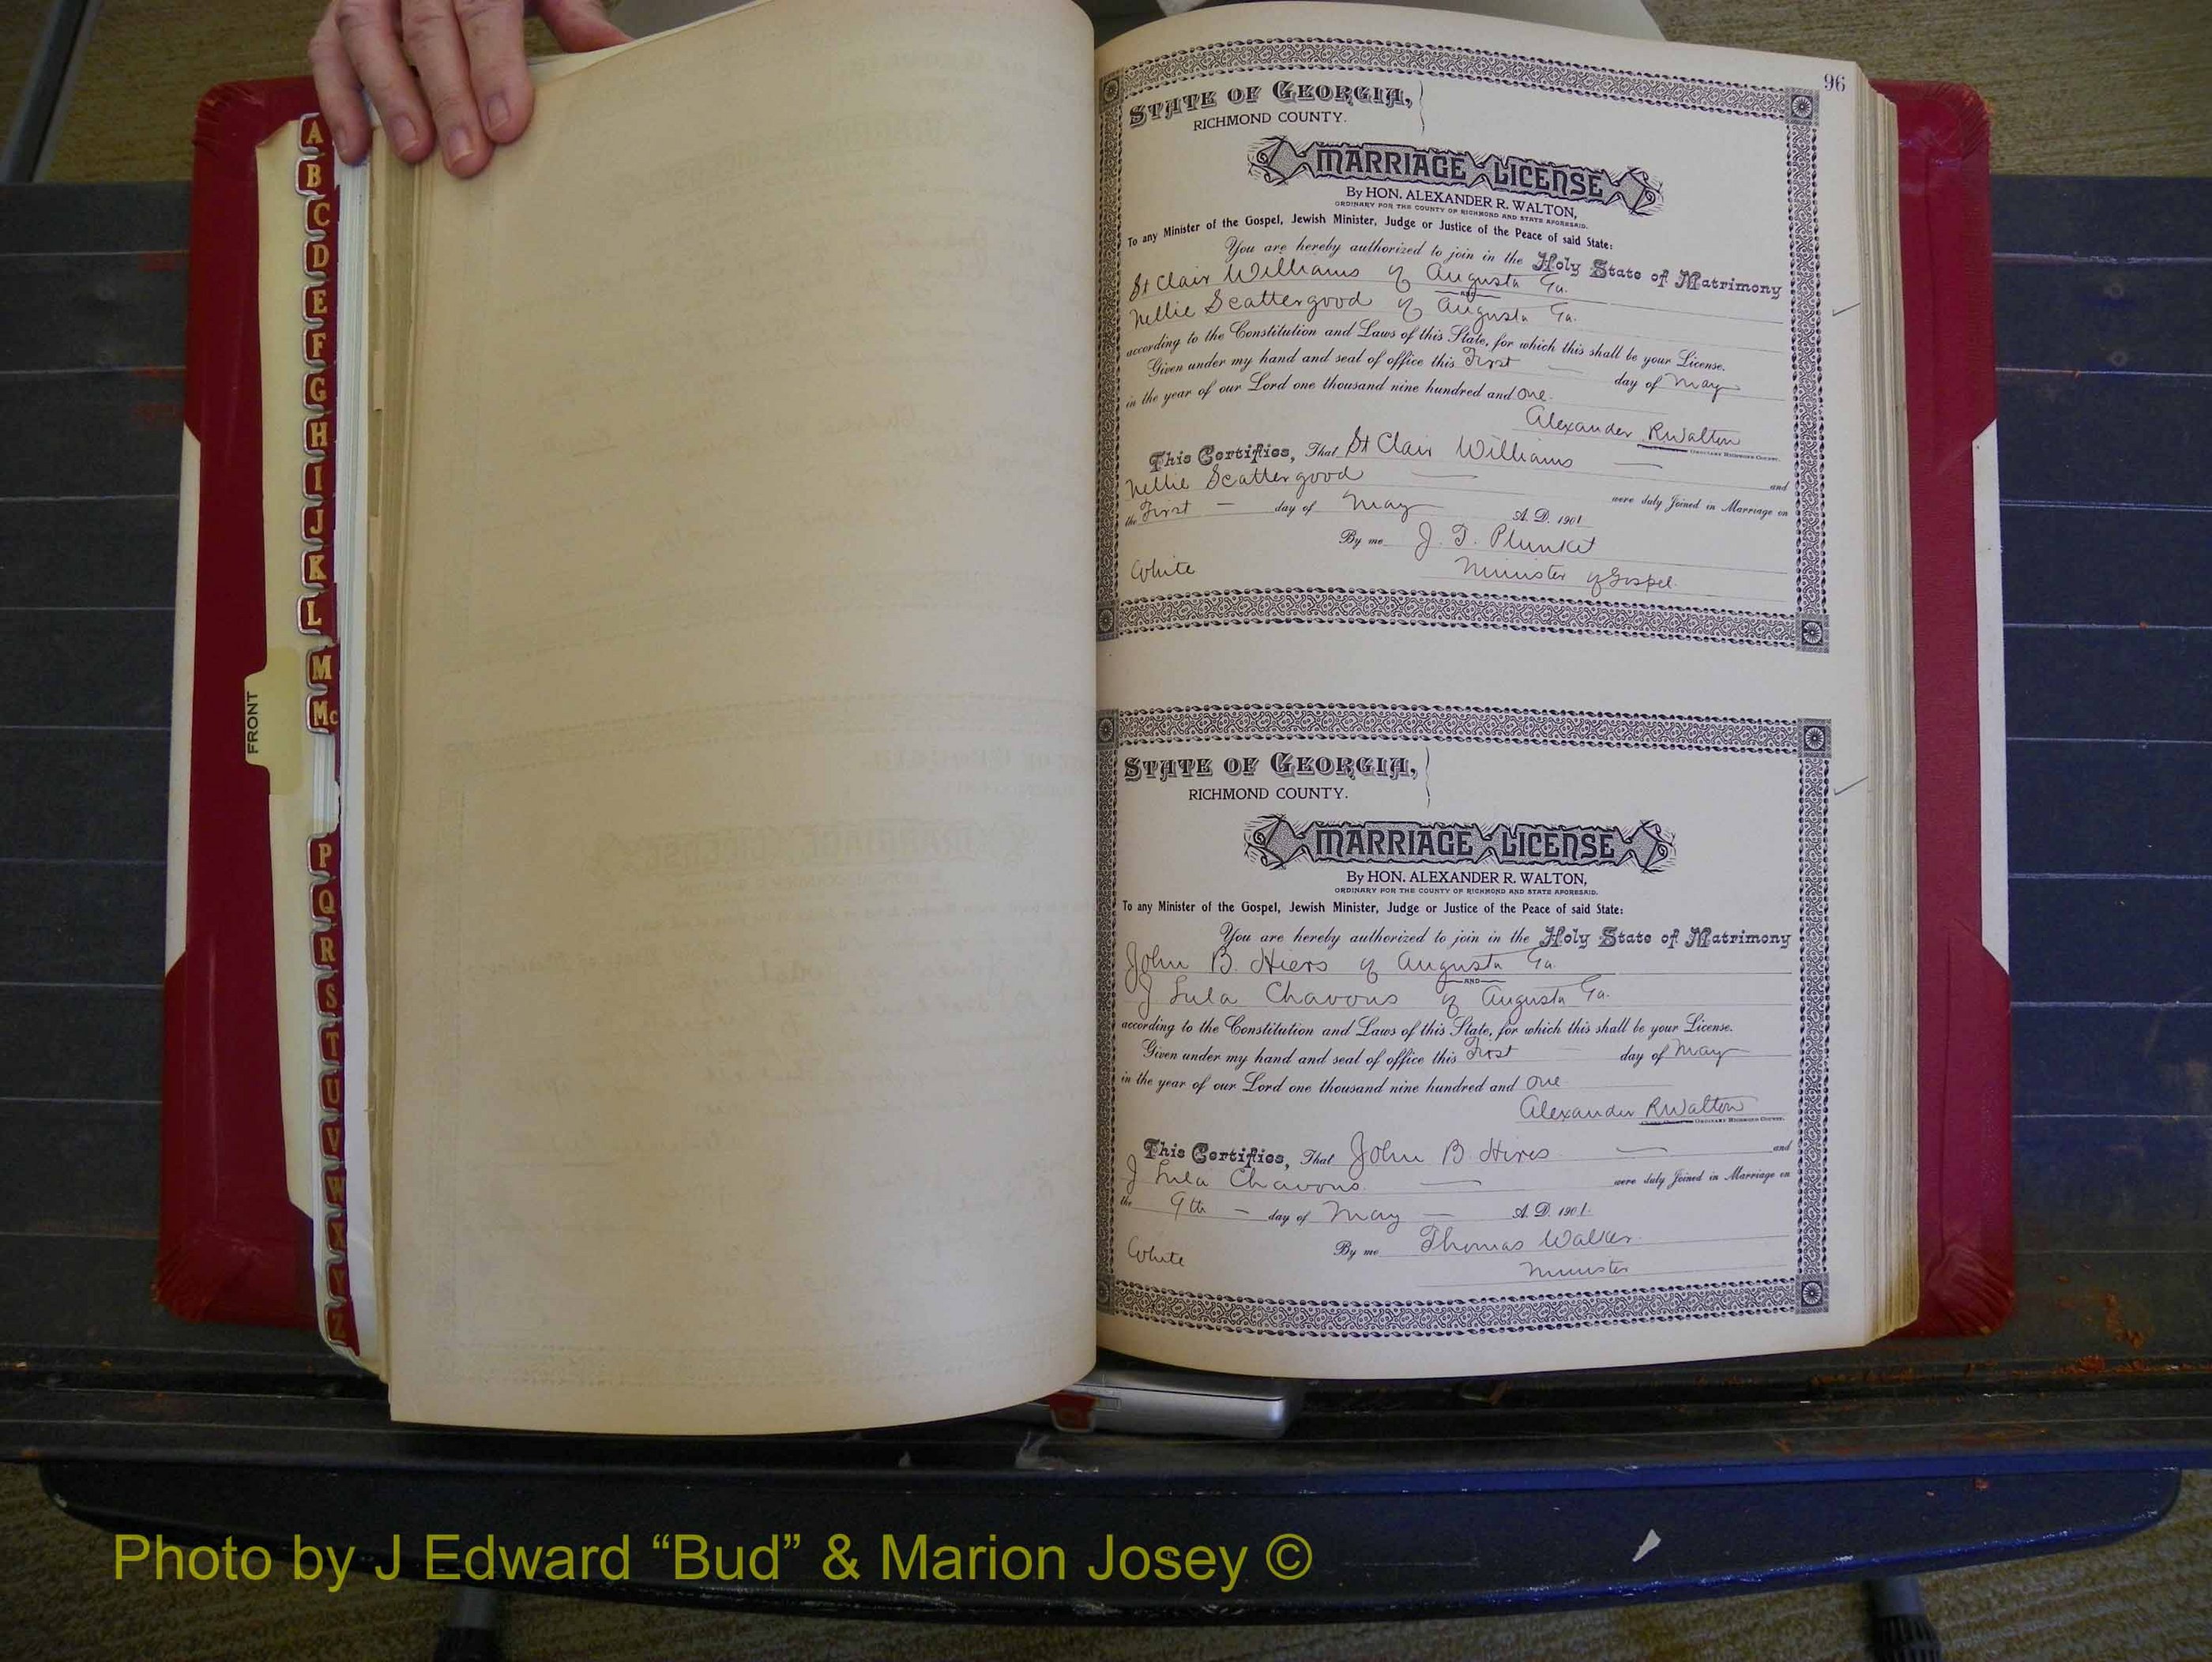 A
B
C
D
E
F
G
H
I
J
K
L
M
Mc
P
Q
R
S
T
U
V
W
X
Y
Z
FRONT
96
STATE OF GEORGIA,
RICHMOND COUNTY.
MARRIAGE LICENSE
By HON. ALEXANDER R. WALTON,
ORDINARY FOR THE COUNTY OF RICHMOND AND STATE AFORESAID.
To any Minister of the Gospel, Jewish Minister, Judge or Justice of the Peace of said State:
You are hereby authorized to join in the Holy State of Matrimony
St Clair Williams of Augusta Ga.
AND
Nellie Scattergood of Augusta Ga.
according to the Constitution and Laws of this State, for which this shall be your License.
Given under my hand and seal of office this First day of May
in the year of our Lord one thousand nine hundred and one
Alexander R Walton
ORDINARY RICHMOND COUNTY.
This Certifies, That St Clair Williams and
Nellie Scattergood were duly Joined in Marriage on
the First day of May A. D. 1901
By me J. T. Plunket
White Minister of Gospel.
STATE OF GEORGIA,
RICHMOND COUNTY.
MARRIAGE LICENSE
By HON. ALEXANDER R. WALTON,
ORDINARY FOR THE COUNTY OF RICHMOND AND STATE AFORESAID.
To any Minister of the Gospel, Jewish Minister, Judge or Justice of the Peace of said State:
You are hereby authorized to join in the Holy State of Matrimony
John B. Hiers of Augusta Ga.
AND
J Lula Chavous of Augusta Ga.
according to the Constitution and Laws of this State, for which this shall be your License.
Given under my hand and seal of office this First day of May
in the year of our Lord one thousand nine hundred and one
Alexander R Walton
ORDINARY RICHMOND COUNTY.
This Certifies, That John B. Hires and
J Lula Chavous were duly Joined in Marriage on
the 9th day of May A. D. 1901.
By me Thomas Walker.
White Minister
Photo by J Edward “Bud” & Marion Josey ©